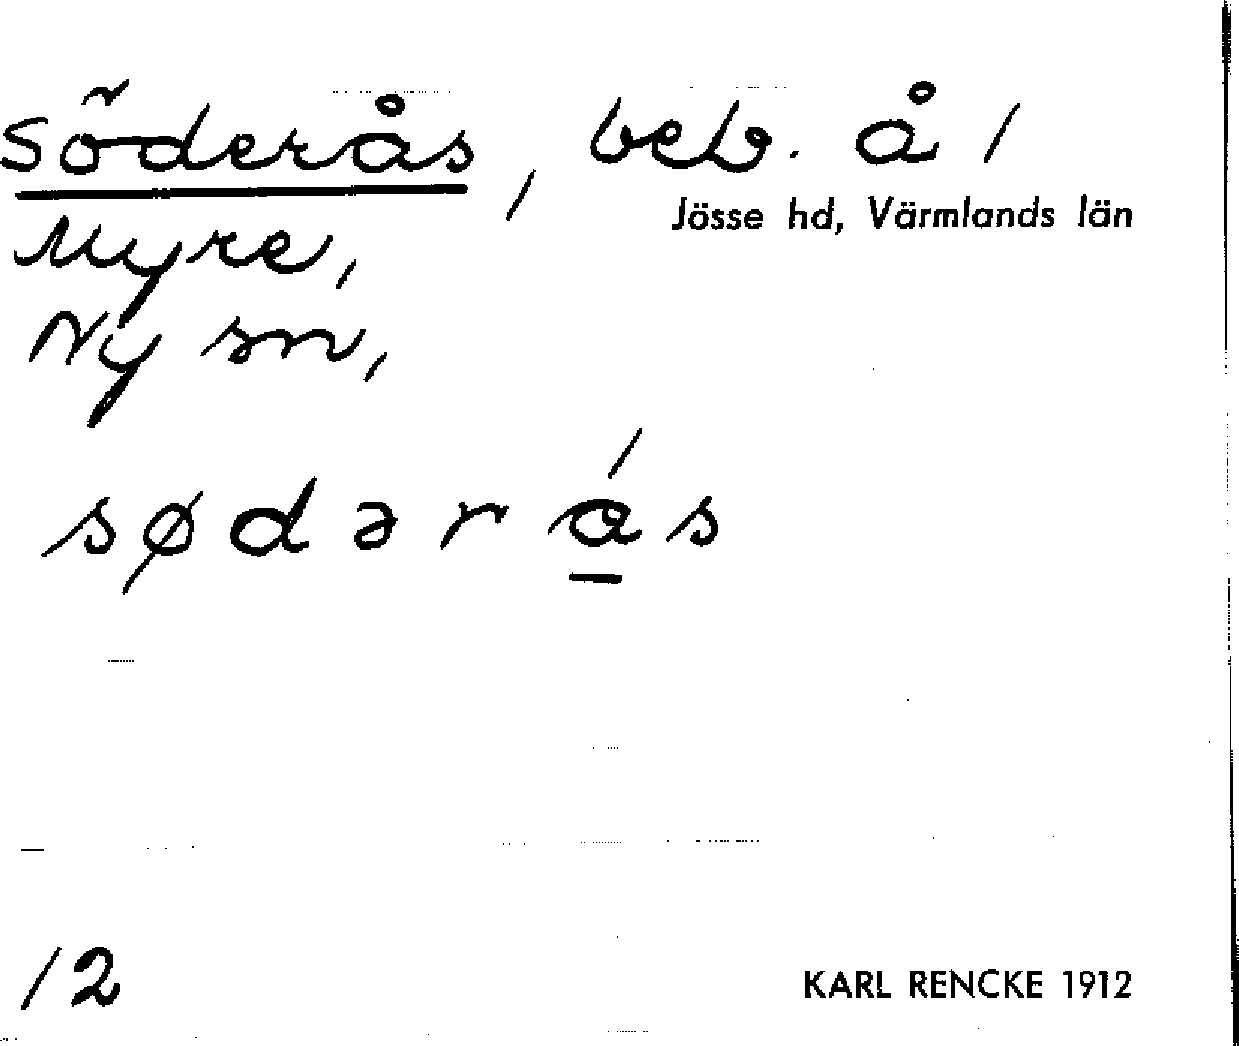 Söderås, beb. å 1
Jösse hd, Värmlands län
Myre,
Ny sn,
sødərás
12
KARL RENCKE 1912